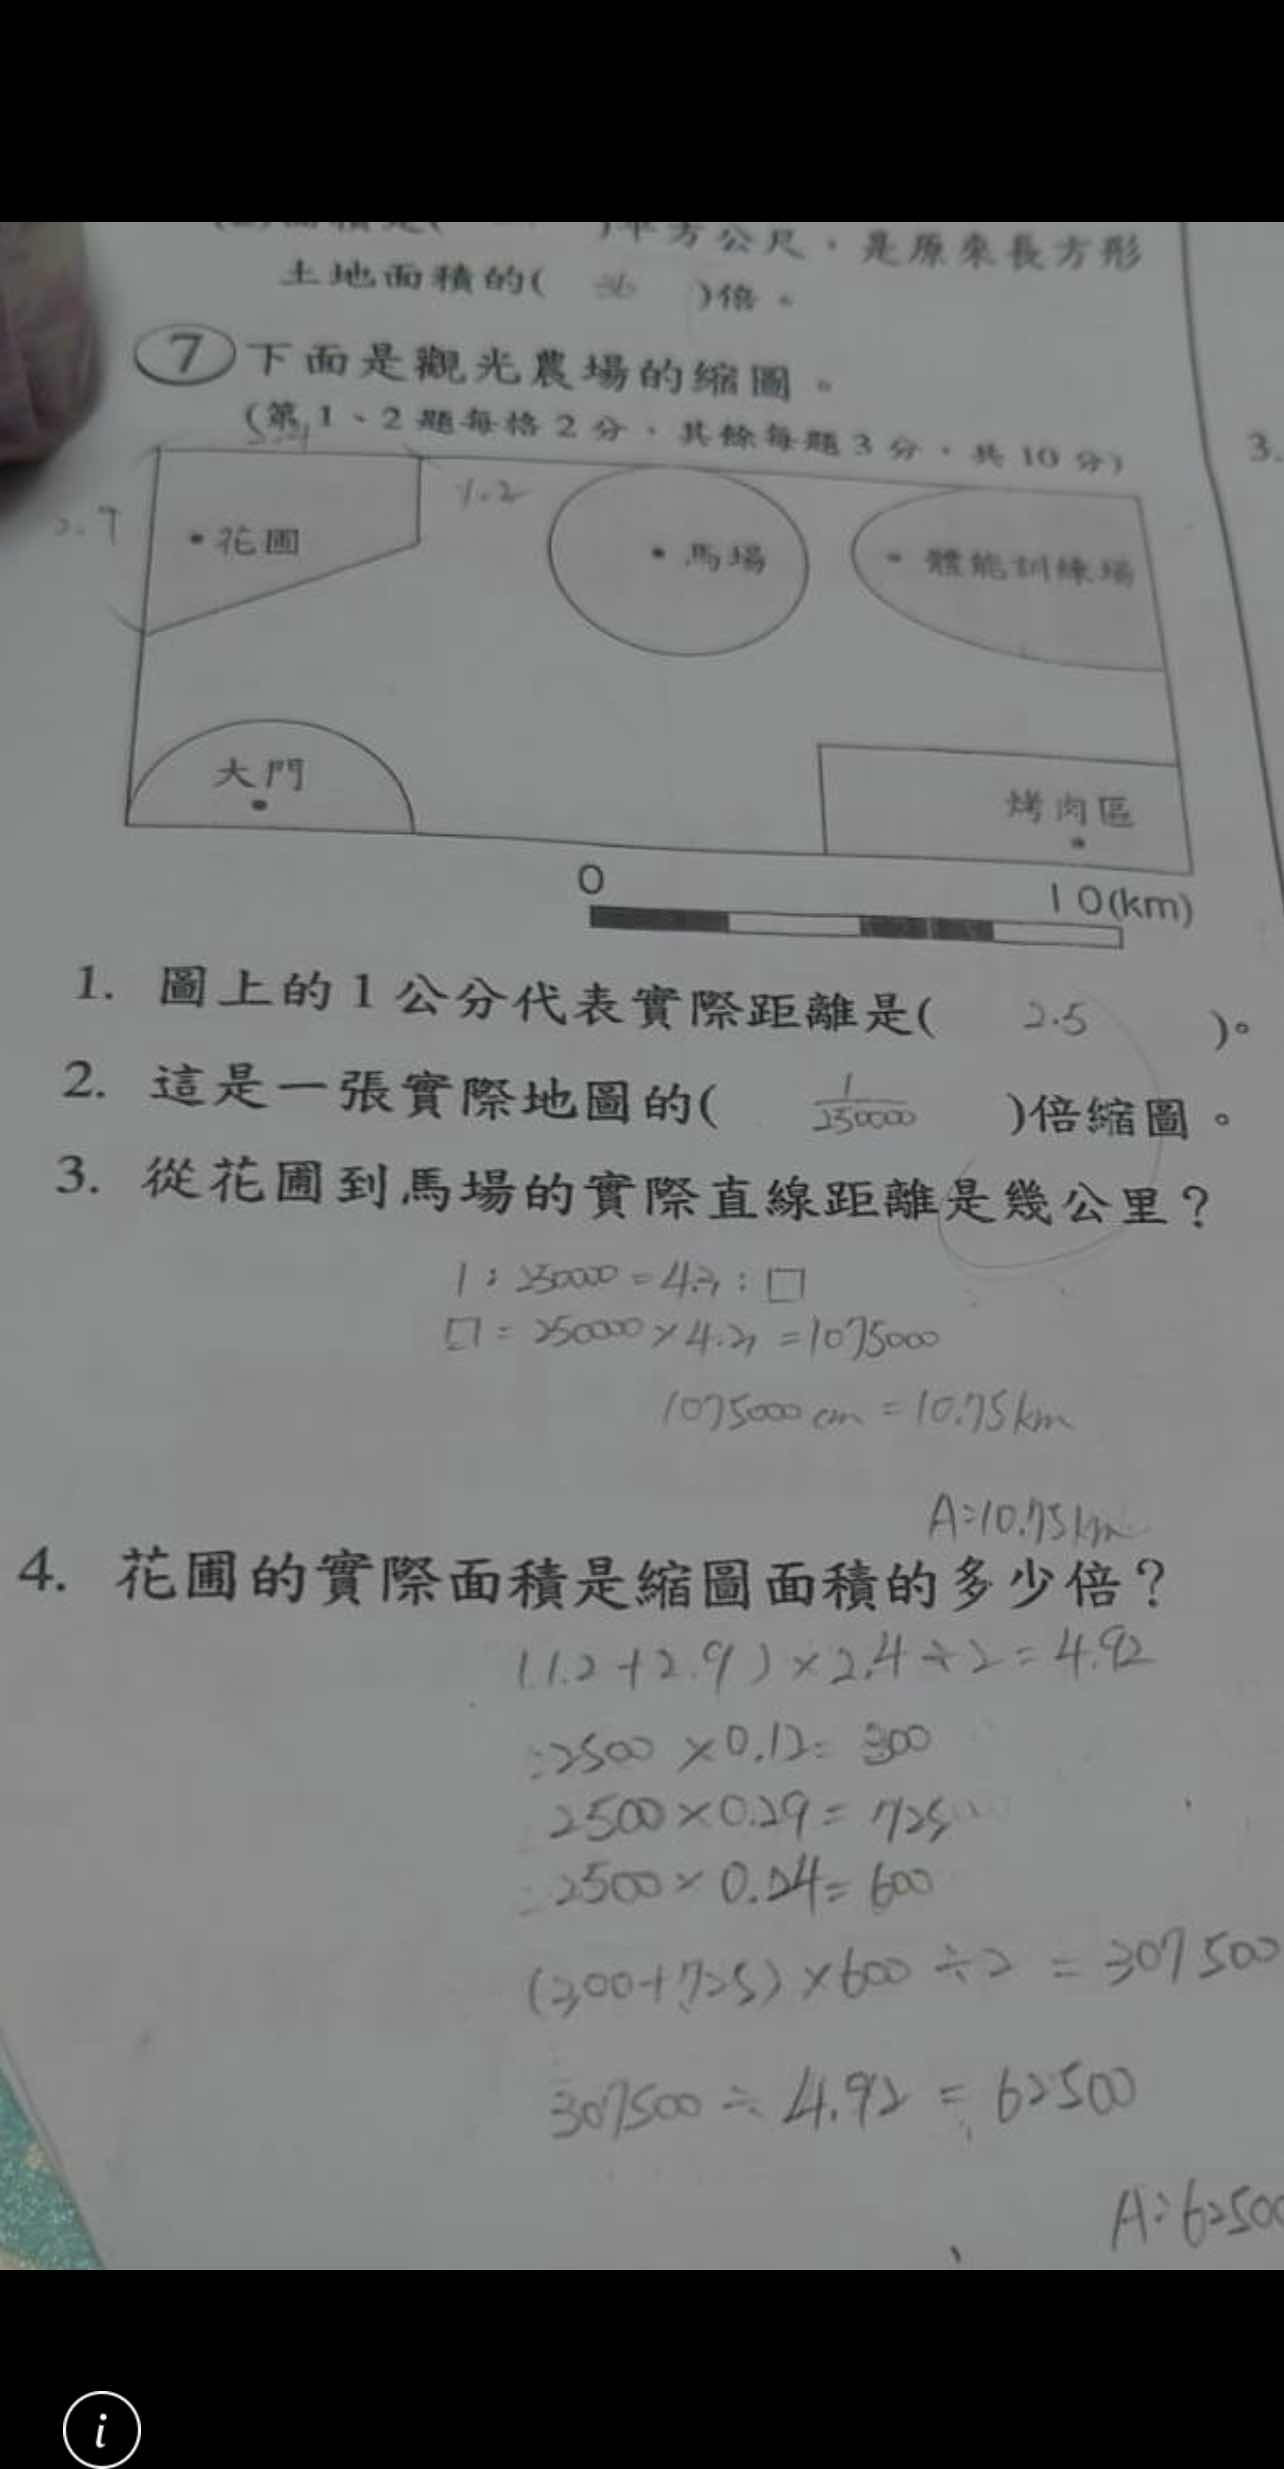 平方公尺，是原來長方形
土地面積的( 36 )倍。
7 下面是觀光農場的縮圖。
(第1、2題每格2分，其餘每題3分，共10分)
3.
1.2
花圃
馬場
體能訓練場
大門
烤肉區
0
10(km)
1. 圖上的1公分代表實際距離是( 2.5 )。
2. 這是一張實際地圖的( 1/250000 )倍縮圖。
3. 從花圃到馬場的實際直線距離是幾公里？
1:250000=4.3:□
□=250000×4.3=1075000
1075000cm=10.75km
A:10.75km
4. 花圃的實際面積是縮圖面積的多少倍？
(1.2+2.9)×2.4÷2=4.92
2500×0.12=300
2500×0.29=725
2500×0.24=600
(300+725)×600÷2=307500
307500÷4.92=62500
A:62500
i